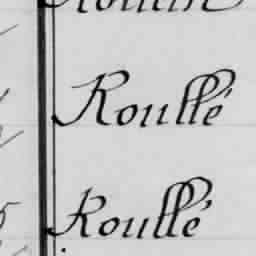 Roullé
Roullé